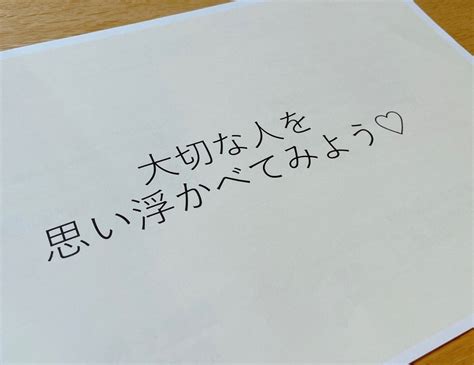 大切な人を
思い浮かべてみよう♡